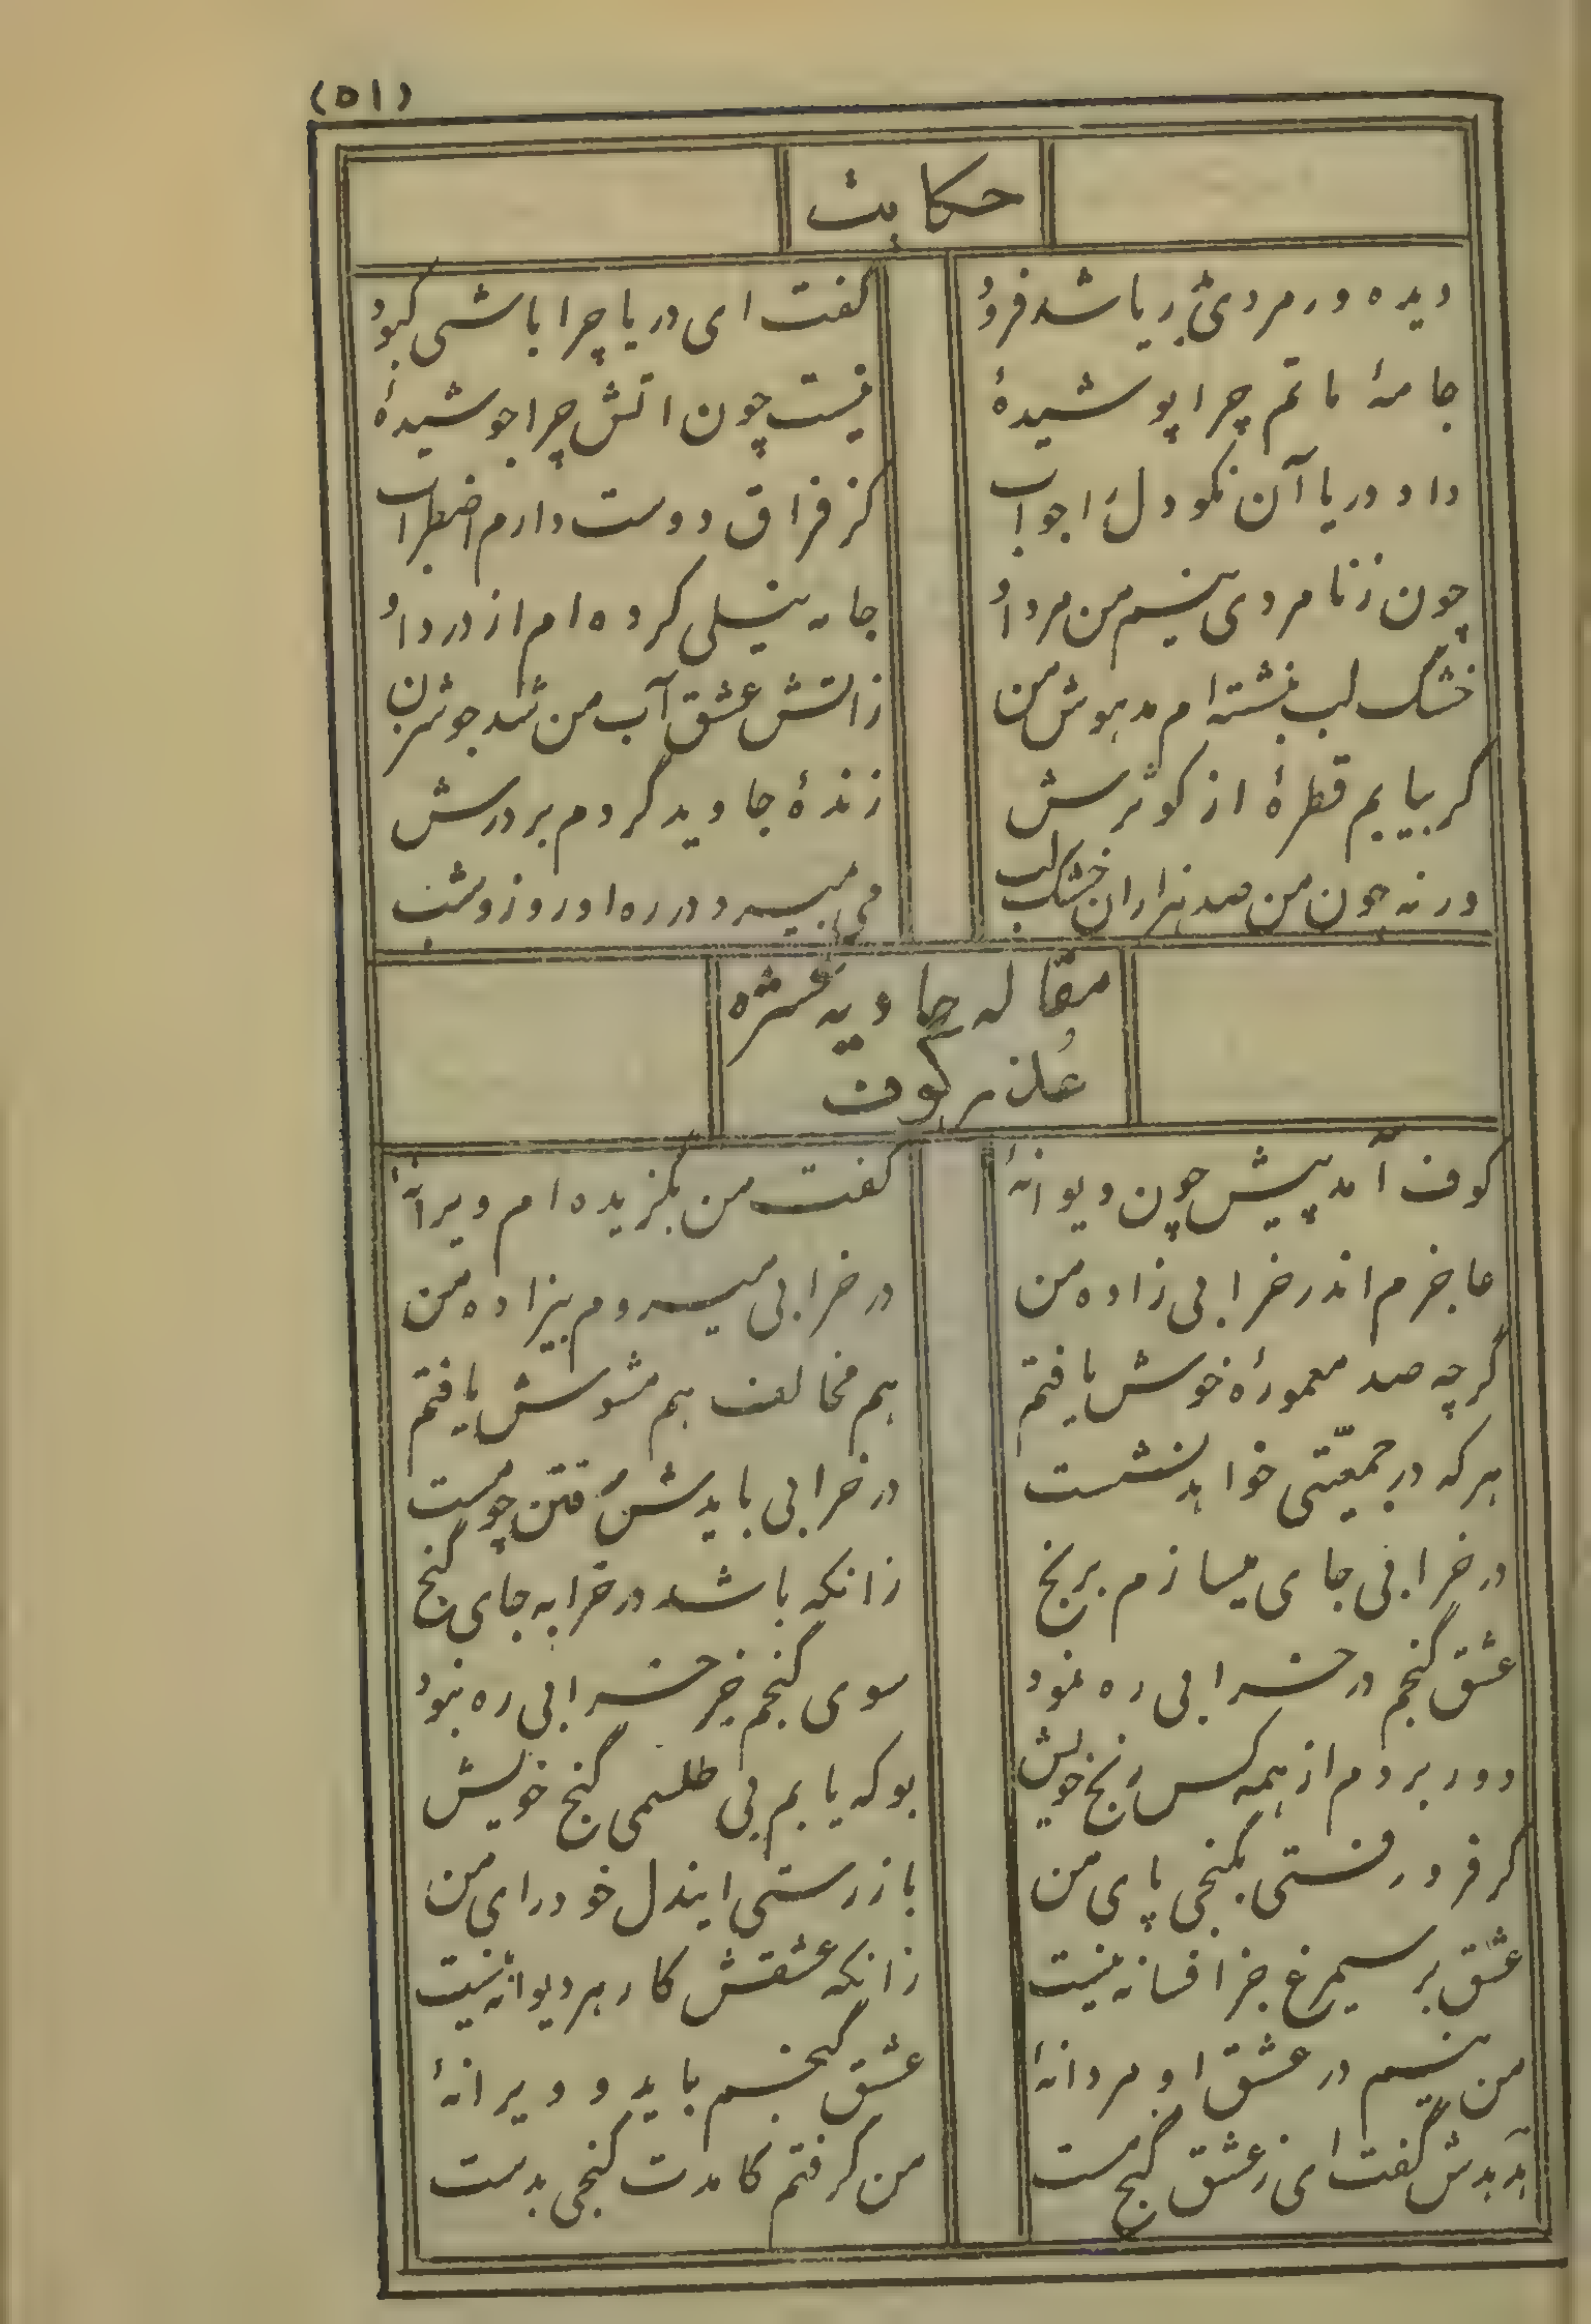 (۵۱)
حکایت
دیده ور مردی بدریا شد فرود گفت ای دریا چرا باشی کبود
جامهٔ ماتم چرا پوشیدهٔ نیست چون اتش چرا جوشیدهٔ
داد دریا آن نکو دل را جواب کز فراق دوست دارم اضطراب
چون ز نامردی نیم من مرد او جامه نیلی کرده ام از درد او
خشک لب بنشسته ام مدهوش من ز اتش عشق آب من شد جوش زن
گر بیابم قطرهٔ از کوثرش زندهٔ جاوید گردم بر درش
ورنه چون من صد هزاران خشک لب می میرد در ره او روز و شب
مقاله حادیه عشره
عذر کوف
کوف آمد پیش چون دیوانهٔ گفت من بگزیده ام ویرانهٔ
عاجزم اندر خرابی زاده من در خرابی میروم بیزاده من
گرچه صد معمورهٔ خوش یافتم هم مخالف هم مشوش یافتم
هرکه در جمعیّتی خواهد نشست در خرابی بایدش رفتن چو مست
در خرابی جای میسازم برنج زانکه باشد در خرابه جای گنج
عشق گنجم در خرابی ره نمود سوی گنجم جز خرابی ره نبود
دور بردم از همه کس رنج خویش بوکه یابم بی طلسمی گنج خویش
گر فرو رفتی بگنجی پای من باز رستی ایندل خودرای من
عشق بر سیمرغ جز افسانه نیست زانکه عشقش کار هر دیوانه نیست
من نیم در عشق او مردانهٔ عشق گنجم باید و ویرانهٔ
هدهدش گفت ای ز عشق گنج مست من گرفتم کامدت گنجی بدست